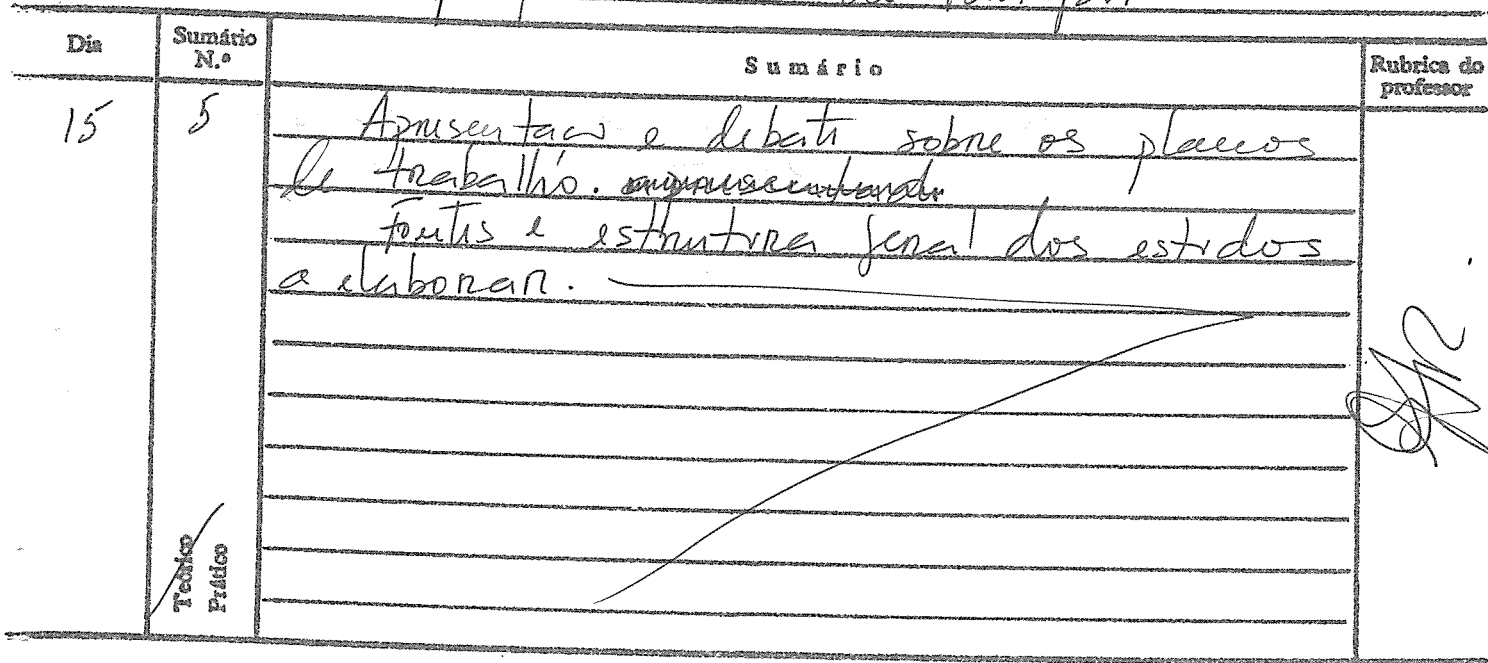 Dia
Sumário N.º
Sumário
Rubrica do professor
15
5
Apresentação e debate sobre os planos
de trabalho.
Fontes e estrutura geral dos estudos
a elaborar.
Teórico
Prático